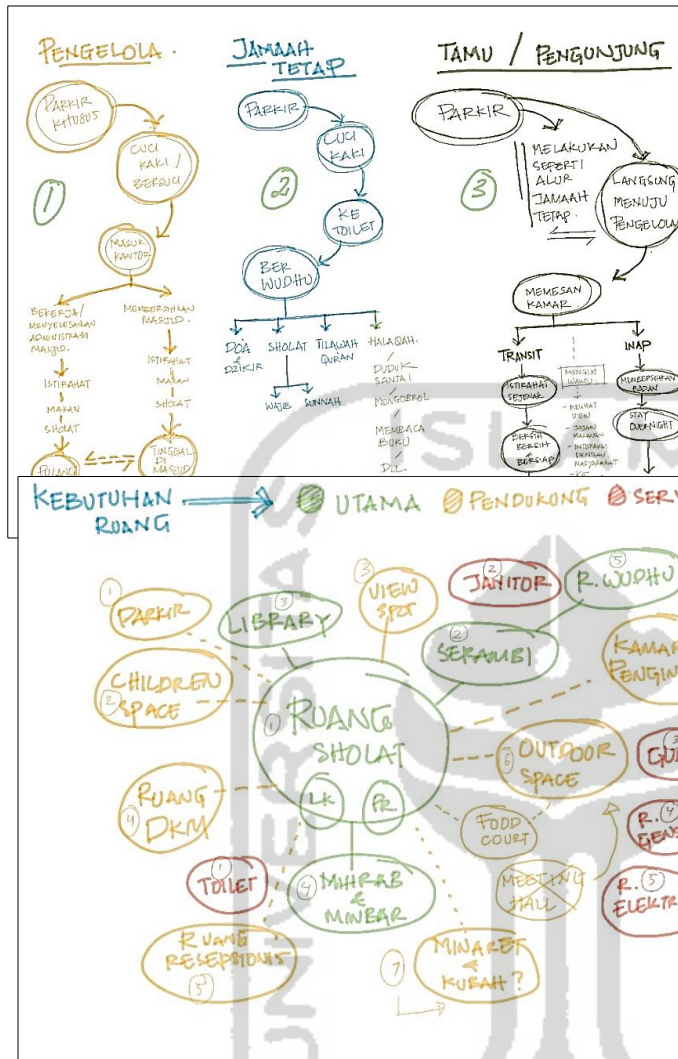 PENGELOLA.
PARKIR
KHUSUS
CUCI
KAKI /
BERSUCI
1
MASUK
KANTOR
BEKERJA/
MENYELESAIKAN
ADMINISTRASI
MASJID.
ISTIRAHAT
MAKAN
SHOLAT
PULANG
MEMBERSIHKAN
MASJID.
ISTIRAHAT
MAKAN
SHOLAT
TINGGAL DI
MASJID
JAMAAH
TETAP
PARKIR
CUCI
KAKI
2
KE
TOILET
BER
WUDHU
DO'A
&
DZIKIR
SHOLAT
WAJIB
SUNNAH
TILAWAH
QUR'AN
HALAQAH.
DUDUK
SANTAI
MENGOBROL
MEMBACA
BUKU
DLL.
TAMU / PENGUNJUNG
PARKIR
MELAKUKAN
SEPERTI
ALUR
JAMAAH
TETAP.
3
LANGSUNG
MENUJU
PENGELOLA
MEMESAN
KAMAR
TRANSIT
ISTIRAHAT
SEJENAK
BERSIH
BERSIH
&
BERSIAP
WAKTU
VIEW
MAKANAN
DENGAN
MASYARAKAT
INAP
MEMBERSIHKAN
BADAN
STAY
OVERNIGHT
KEBUTUHAN
RUANG
UTAMA
PENDUKUNG
SERV
1
PARKIR
3
LIBRARY
3
VIEW
SPOT
2
JANITOR
5
R. WUDHU
2
SERAMBI
CHILDREN
2 SPACE
1 RUANG
SHOLAT
LK
PR
KAMAR
PENGIN
6 OUTDOOR
SPACE
3
GUD
RUANG
4 DKM
FOOD
COURT
R. 4
GENS
1
TOILET
4 MIHRAB
&
MINBAR
MEETING
HALL
R. 5
ELEKTR
RUANG
RESEPSIONIS
5
7
MINARET
&
KUBAH?
ISLAM
UNIVERSITAS